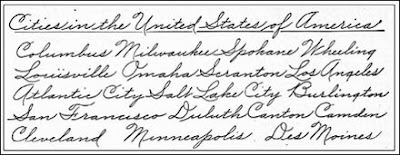 Cities in the United States of America
Columbus Milwaukee Spokane Wheeling
Louisville Omaha Scranton Los Angeles
Atlantic City Salt Lake City Burlington
San Francisco Duluth Canton Camden
Cleveland Minneapolis Des Moines